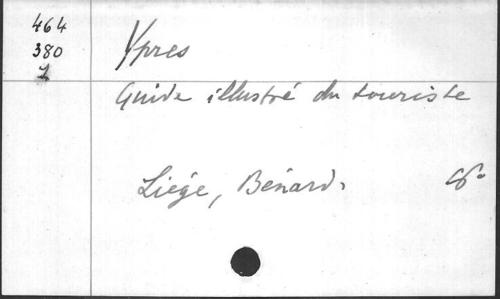 464
380
1
Ypres
Guide illustré du touriste
Liége, Bénard.